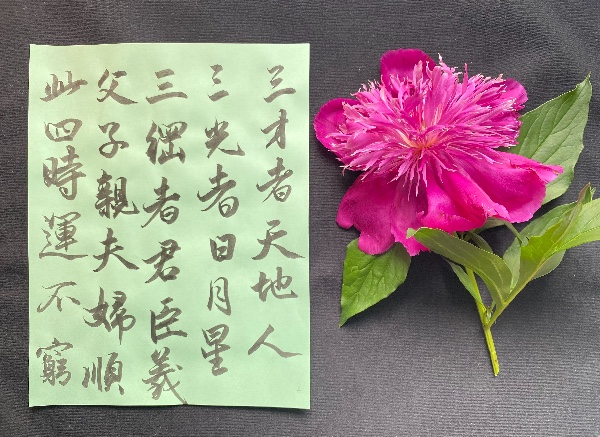 三才者天地人
三光者日月星
三綱者君臣義
父子親夫婦順
此四時運不窮